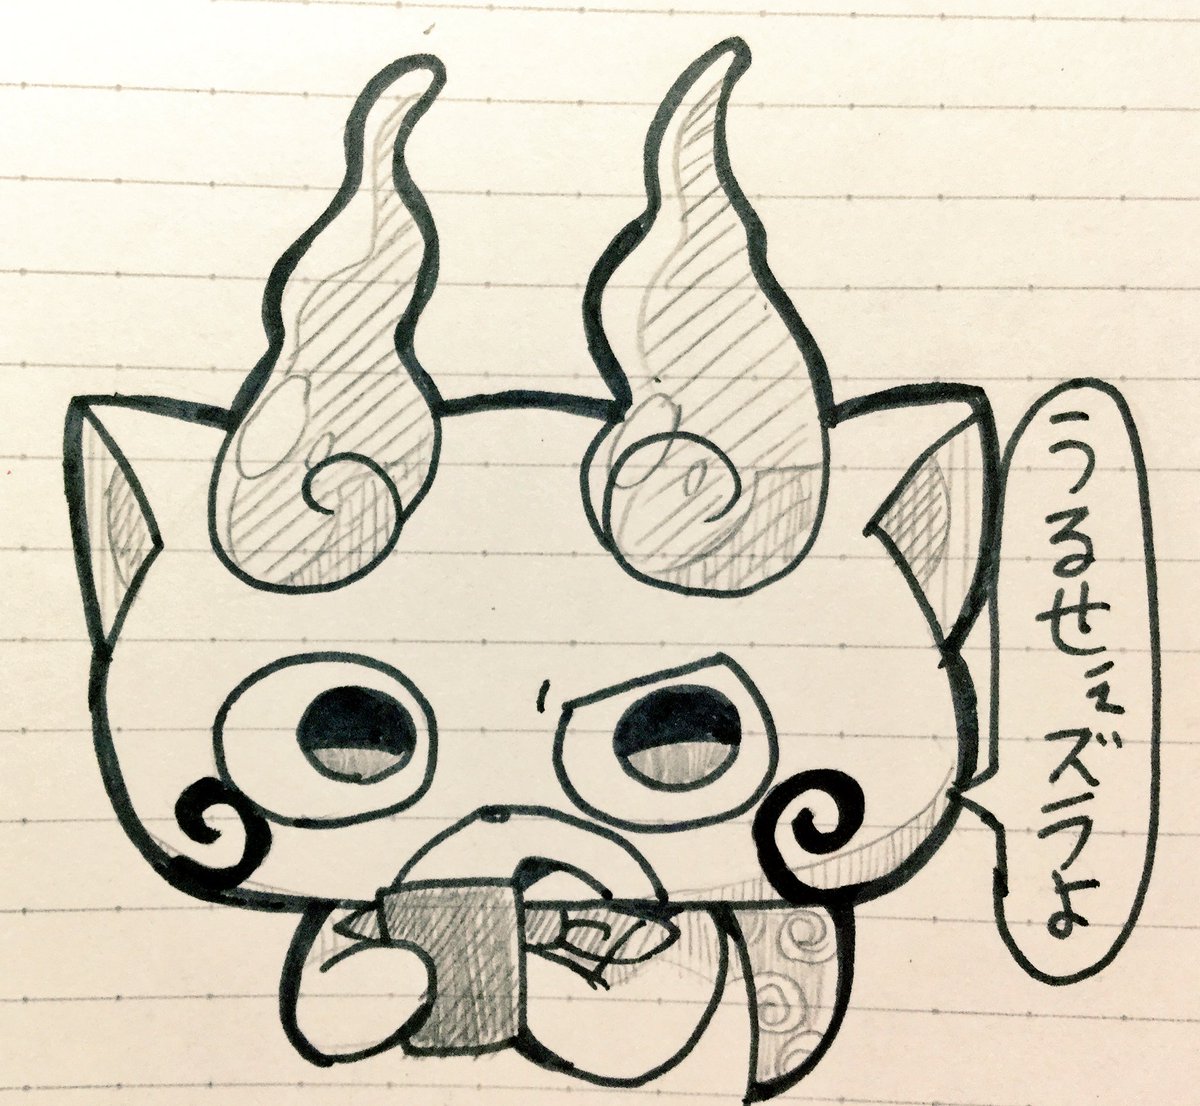 うるせぇズラよ